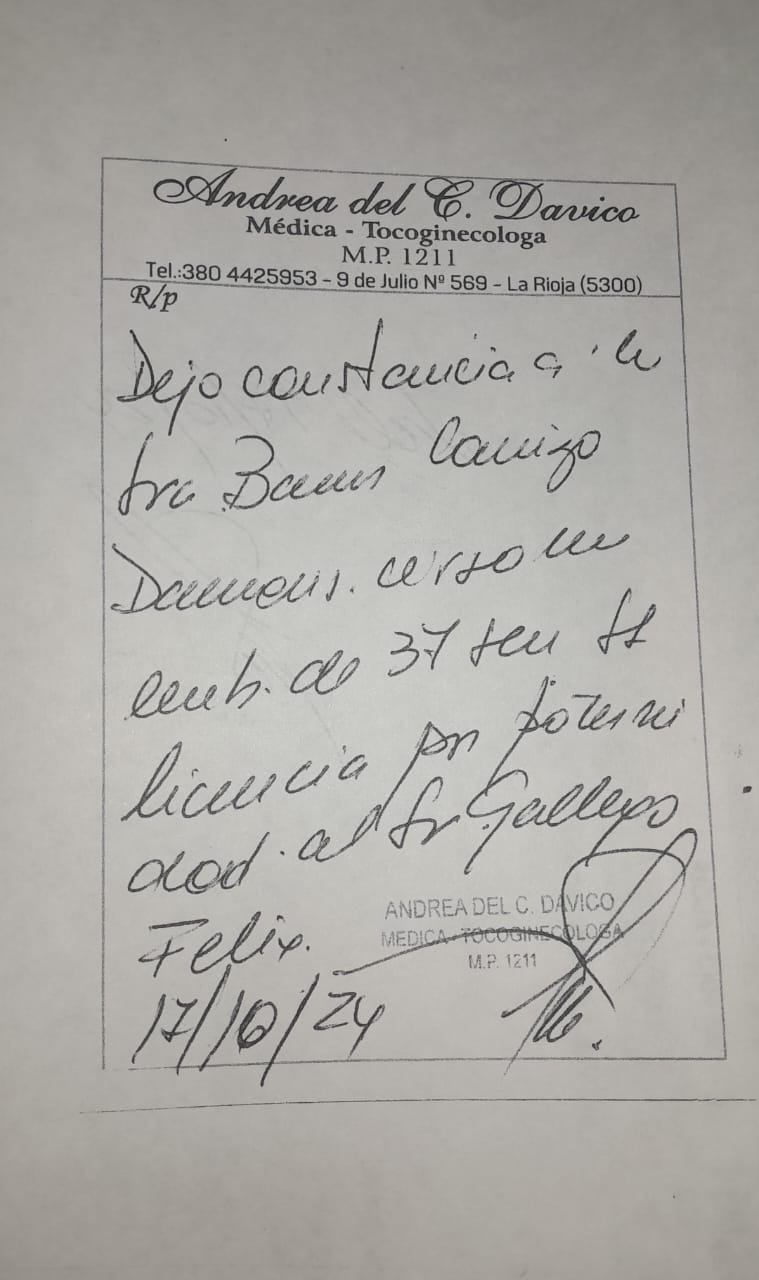 Andrea del C. Davico
Médica - Tocoginecologa
M.P. 1211
Tel.:380 4425953 - 9 de Julio Nº 569 - La Rioja (5300)
R/p
Dejo constancia q' la
Sra
de 37 sem
licencia por paterni
dad. al Sr Gallego
Felix.
ANDREA DEL C. DAVICO
MEDICA - TOCOGINECOLOGA
M.P. 1211
17/10/24